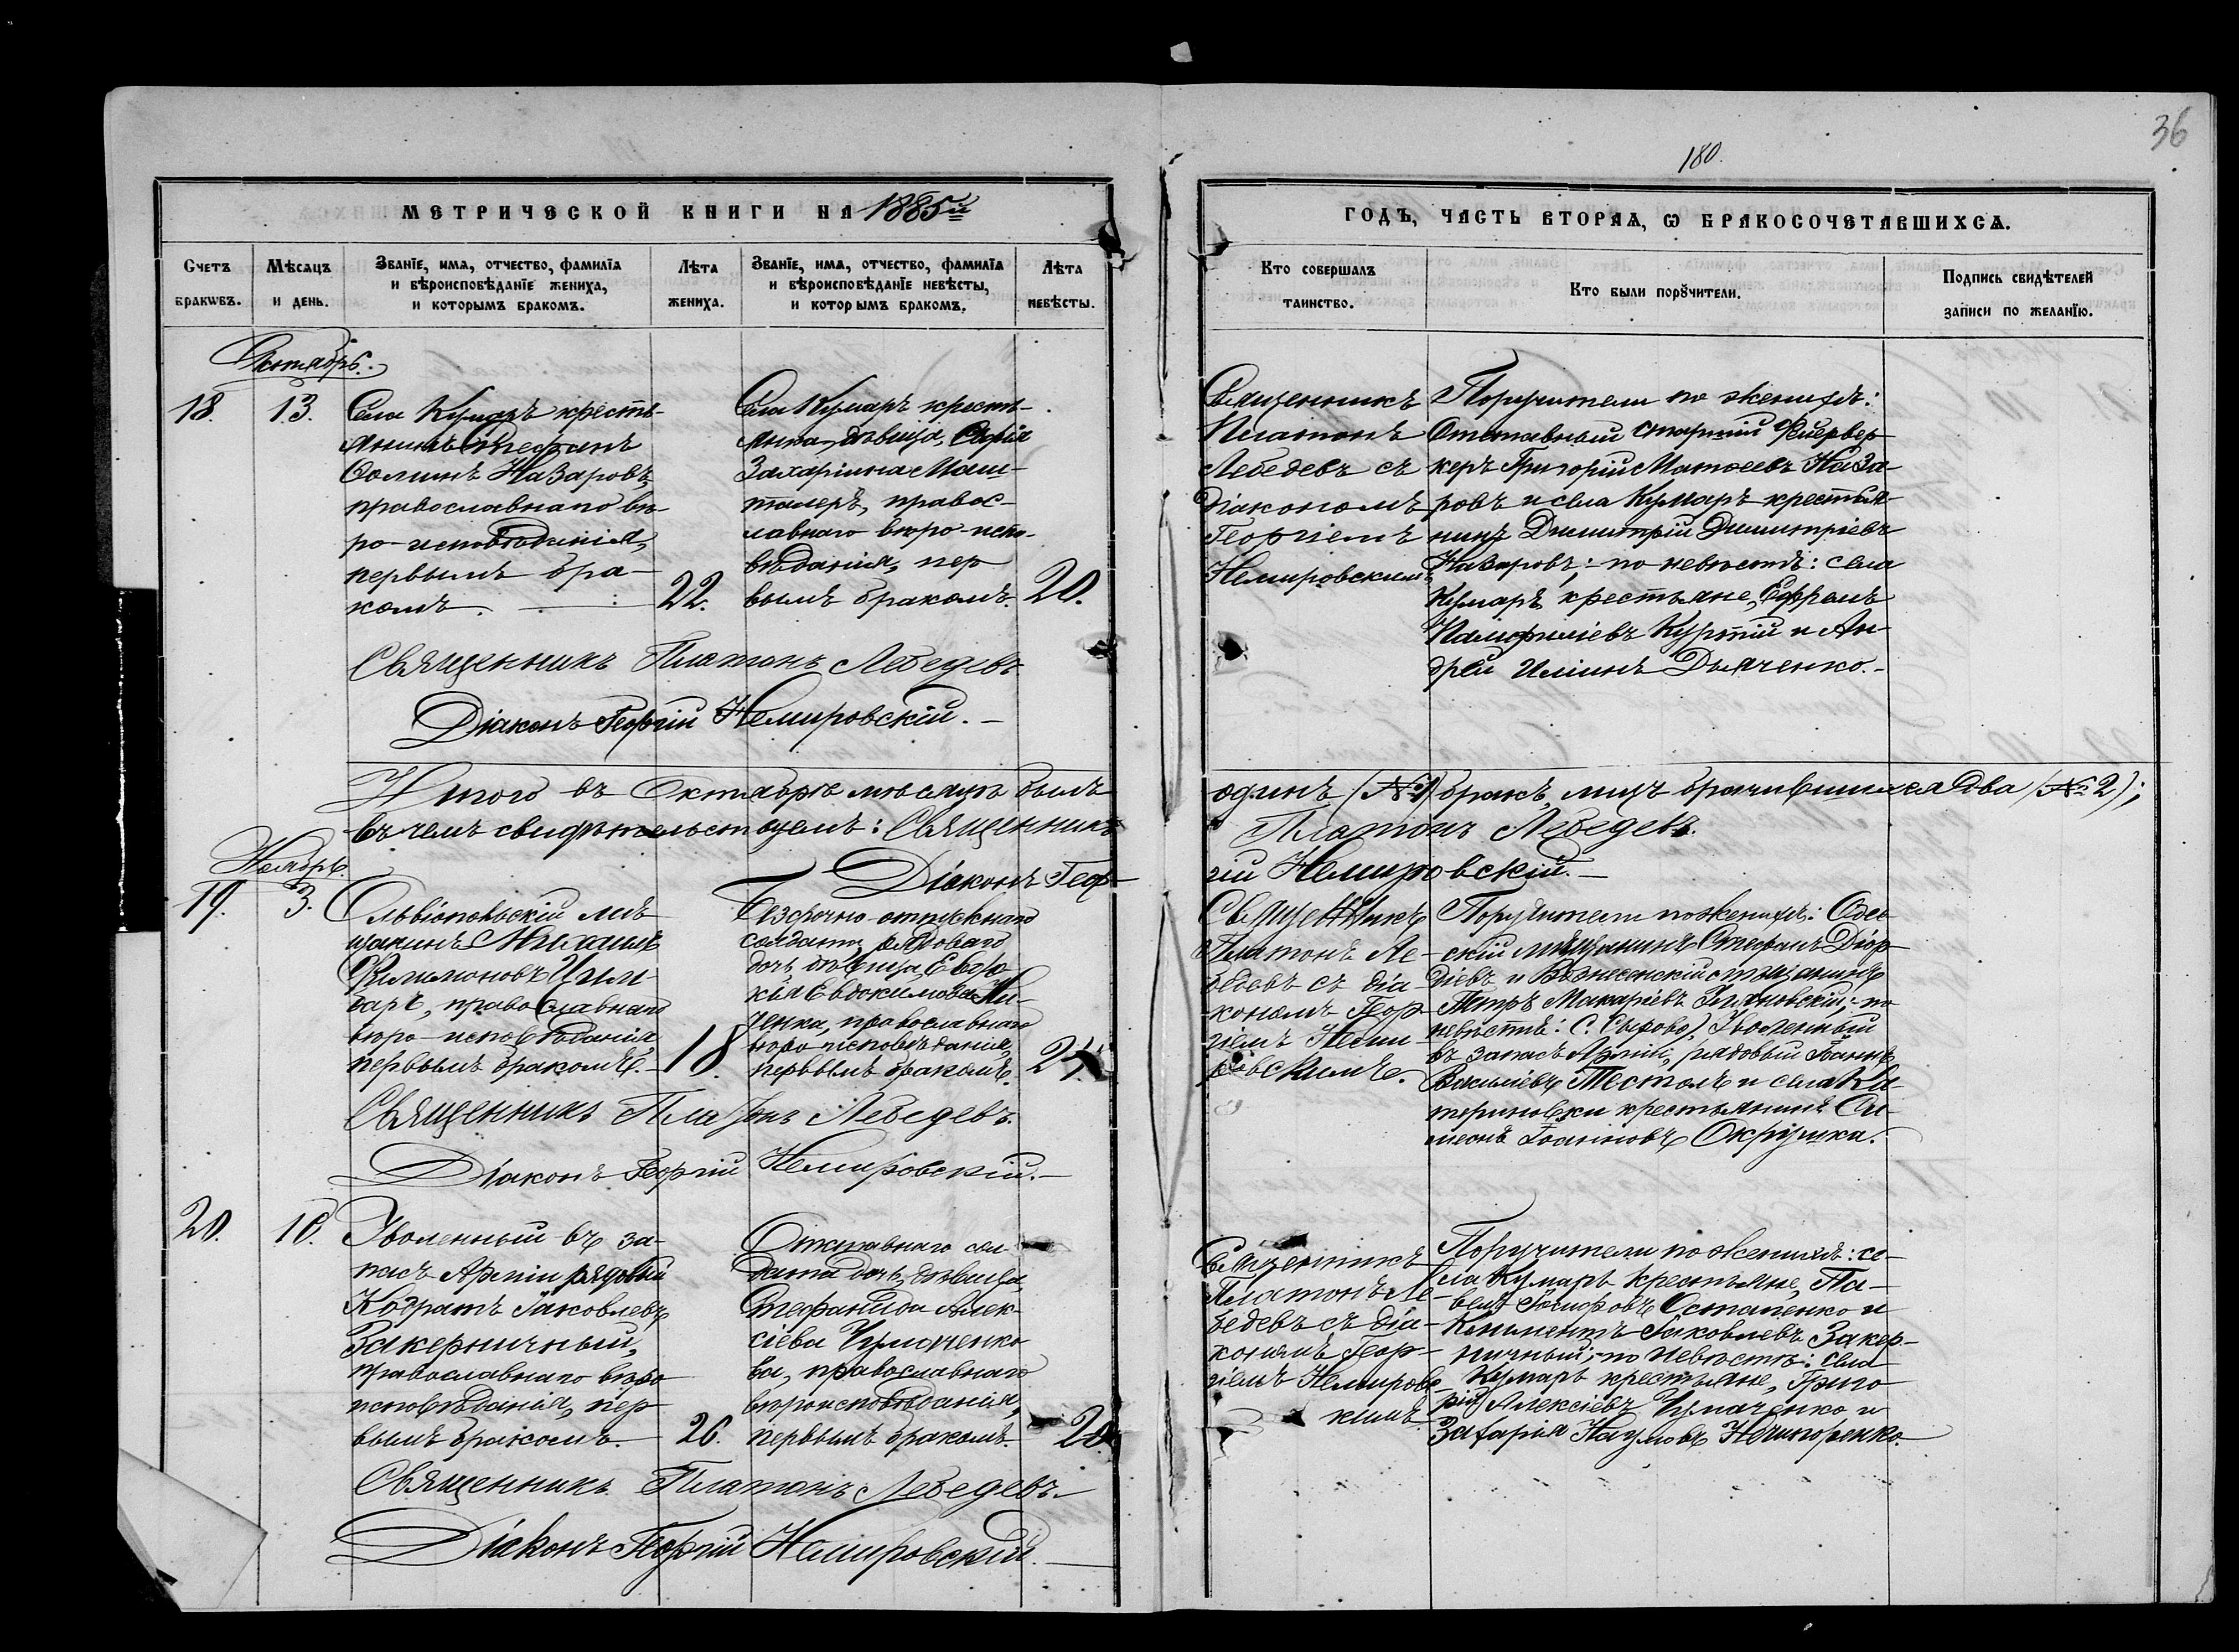 36
180.
МЕТРИЧЕСКОЙ КНИГИ НА 1885й
ГОДЪ, ЧАСТЬ ВТОРАѦ, Ѡ БРАКОСОЧЕТАВШИХСѦ.
Счетъ
браквъ.
Мѣсѧцъ
и день.
Званїе, имѧ, отчество, фамилїѧ
и вѣроисповѣданїе жениха,
и которымъ бракомъ.
Лѣта
жениха.
Званїе, имѧ, отчество, фамилїѧ
и вѣроисповѣданїе невѣсты,
и которымъ бракомъ.
Лѣта
невѣсты.
Кто совершалъ
таинство.
Кто были порꙋчители.
Подпись свидѣтелей
записи по желанїю.
Октябрь.
18.
13.
Села Кумаръ кресть-
янинъ Стефанъ
Ѳоминъ Назаровъ,
православнаго вѣ-
ро-исповѣданія,
первымъ бра-
комъ.
22.
Села Кумаръ кресть-
янка, дѣвица, Софія
Захаріина
правос-
лавнаго вѣро-испо-
вѣданія, пер
вымъ бракомъ.
20.
Священникъ
Платонъ
Лебедевъ съ
діакономъ
Георгіемъ
Немировскимъ
Поручители по женихѣ:
Отставный старшій Фейервер
керъ Григорій Матѳеевъ Наза-
ровъ и села Кумаръ крестья-
нинъ Димитрій Димитріевъ
Назаровъ; по невѣстѣ: села
Кумаръ крестьяне, Ефремъ
Памфиліевъ Куртій и Ан-
дрей Илiинъ Дьяченко.-
Священникъ Платонъ Лебедевъ
Діаконъ Георгій Немировскій.-
Итого въ Октябрѣ мѣсяцѣ былъ
одинъ (№ 1) бракъ, лицъ брачившихся два (№ 2);
въ чемъ свидѣтельствуемъ: Священникъ
Платонъ Лебедевъ.
Діаконъ Геор-
гій Немировскій.-
Ноябрь.
19.
3.
Ольвіопольскій мѣ-
щанинъ Михаилъ
Филимоновъ
православнаго
вѣро-исповѣданія,
первымъ бракомъ.-
18.
Безсрочно-отпускнаго
солдата, рядоваго
дочь, дѣвица, Евдо-
кія Евдокимова
православнаго
вѣро-исповѣданія,
первымъ бракомъ.
Священникъ
Платонъ Ле-
бедевъ съ діа-
кономъ Геор-
гіемъ Неми-
ровскимъ.
Поручители по женихѣ: Одес-
скій мѣщанинъ Стефанъ
и Вознесенскій мѣщанинъ
Петръ Макаріевъ
по
невѣстѣ: С. Сырово, Уволенный
въ запасъ Арміи, рядовый Іоаннъ
Василіевъ и села Ка-
териновки крестьянинъ Си-
меонъ Іоанновъ
Священникъ Платонъ Лебедевъ.
Діаконъ Георгій Немировскій.-
20.
10.
Уволенный въ за-
пасъ Арміи рядовый
Кодратъ Іаковлевъ
Закерничный,
православнаго вѣро
исповѣданія, пер-
вымъ бракомъ.
26.
Отставнаго сол-
дата дочь, дѣвица,
Стефанида Алек-
сіева Чумаченко
ва, православнаго
вѣроисповѣданія,
первымъ бракомъ.
20
Священникъ
Платонъ Ле-
бедевъ съ діа-
кономъ Геор-
гіемъ Немировс
кимъ
Поручители по женихѣ: се-
ла Кумаръ крестьяне, Па-
велъ Іосифовъ Остапенко и
Климентъ Іаковлевъ Закер-
ничный; по невѣстѣ: села
Кумаръ крестьяне, Григо
рій Алексіевъ Чумаченко и
Захарія Наумовъ Нечипоренко.
Священникъ Платонъ Лебедевъ.
Діаконъ Георгій Немировскій.-